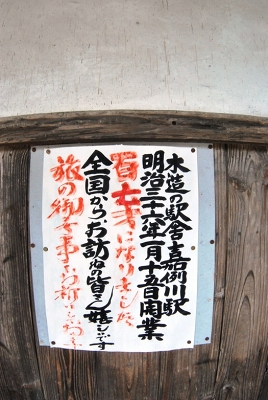 木造の駅舎嘉例川駅
明治三十六年一月十五日開業
百七才になりました
全国から、お訪ねの皆さん嬉しいです
旅の御無事をお祈りします